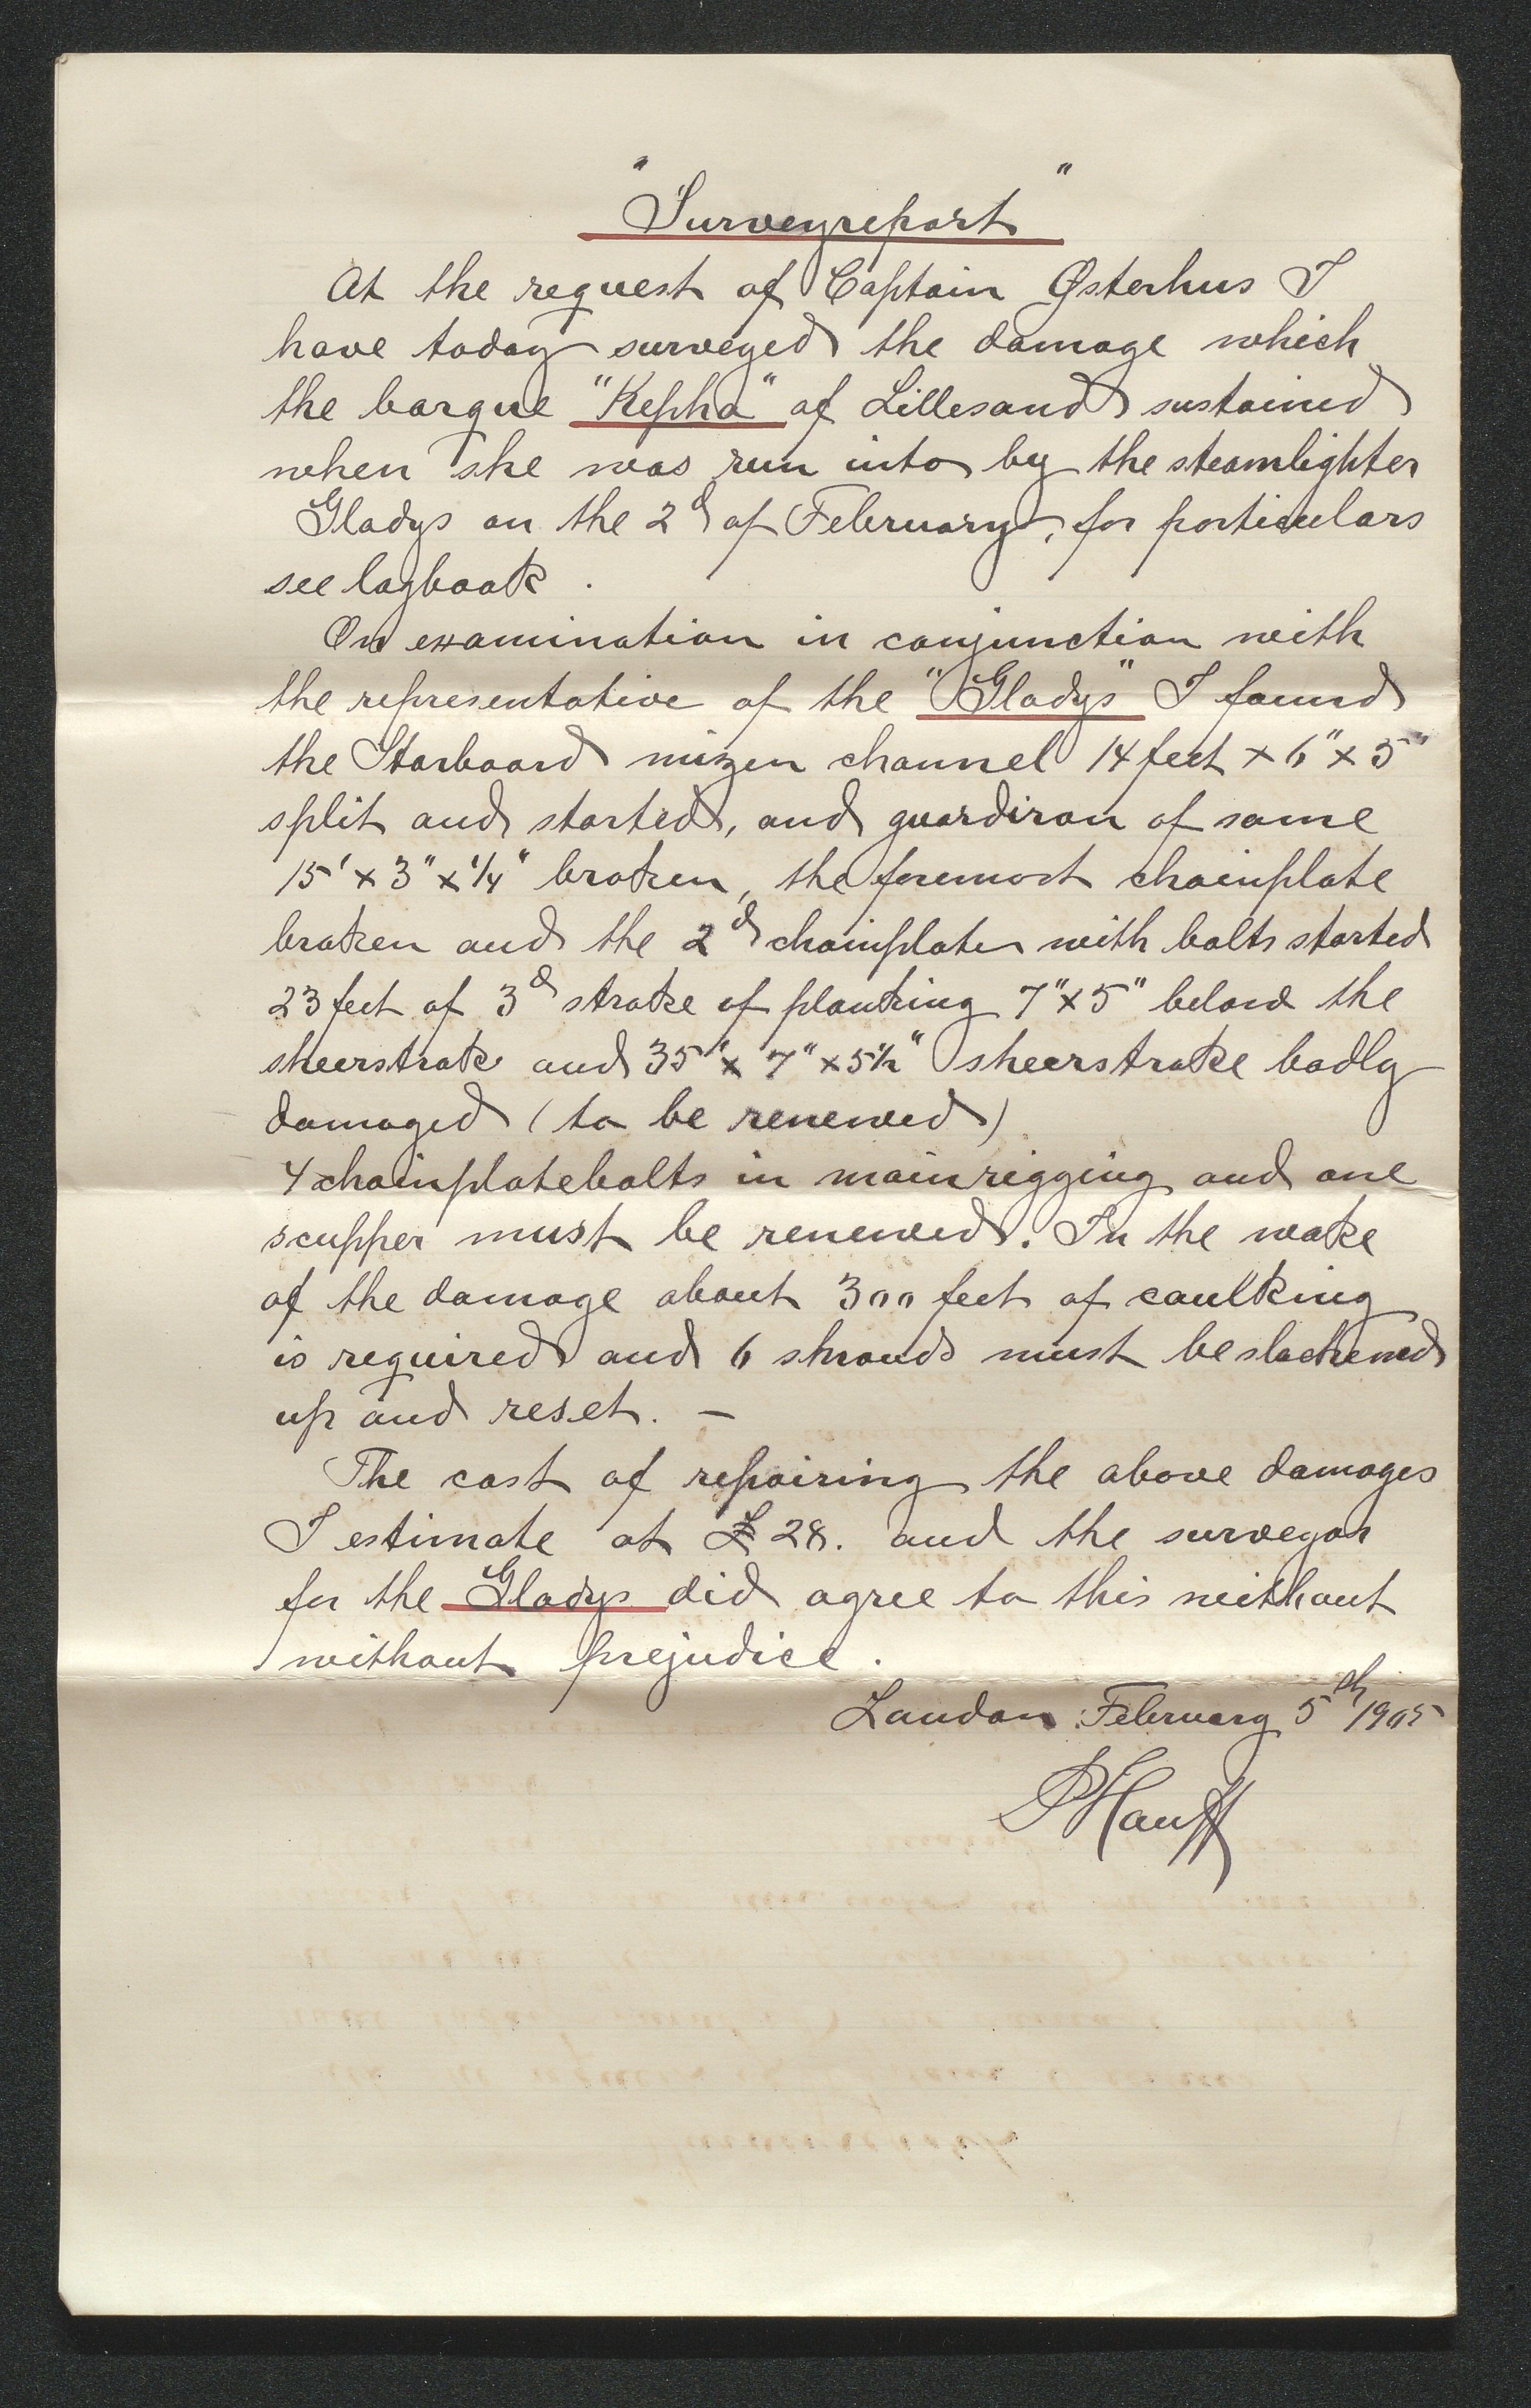 "Surveyreport"
At the request of Captain Østerhus I
have today surveyed the damage which
the barque "Kepha" of Lillesand sustained
when she was run into by the steamlighter
Gladys on the 2d of February, for particulars
see logbook.
On examination in conjunction with
the representative of the "Gladys" I found
the Starboard mizen channel 14 feet x 6" x 5"
split and started, and guardiron of same
15' x 3" x 1/4" broken, the foremost chainplate
broken and the 2d chainplate with bolts started
23 feet of 3d strake of planking 7" x 5" below the
sheerstrake and 35" x 7" x 5 1/2" sheerstrake badly
damaged (to be renewed)
4 chainplatebolts in mainrigging and one
scupper must be renewed. In the wake
of the damage about 300 feet of caulking
is required and 6 shrouds must be slackened
up and reset. —
The cost of repairing the above damages
I estimate at £ 28. and the surveyor
for the Gladys did agree to this without
without prejudice.
London February 5th 1905
P Hauff